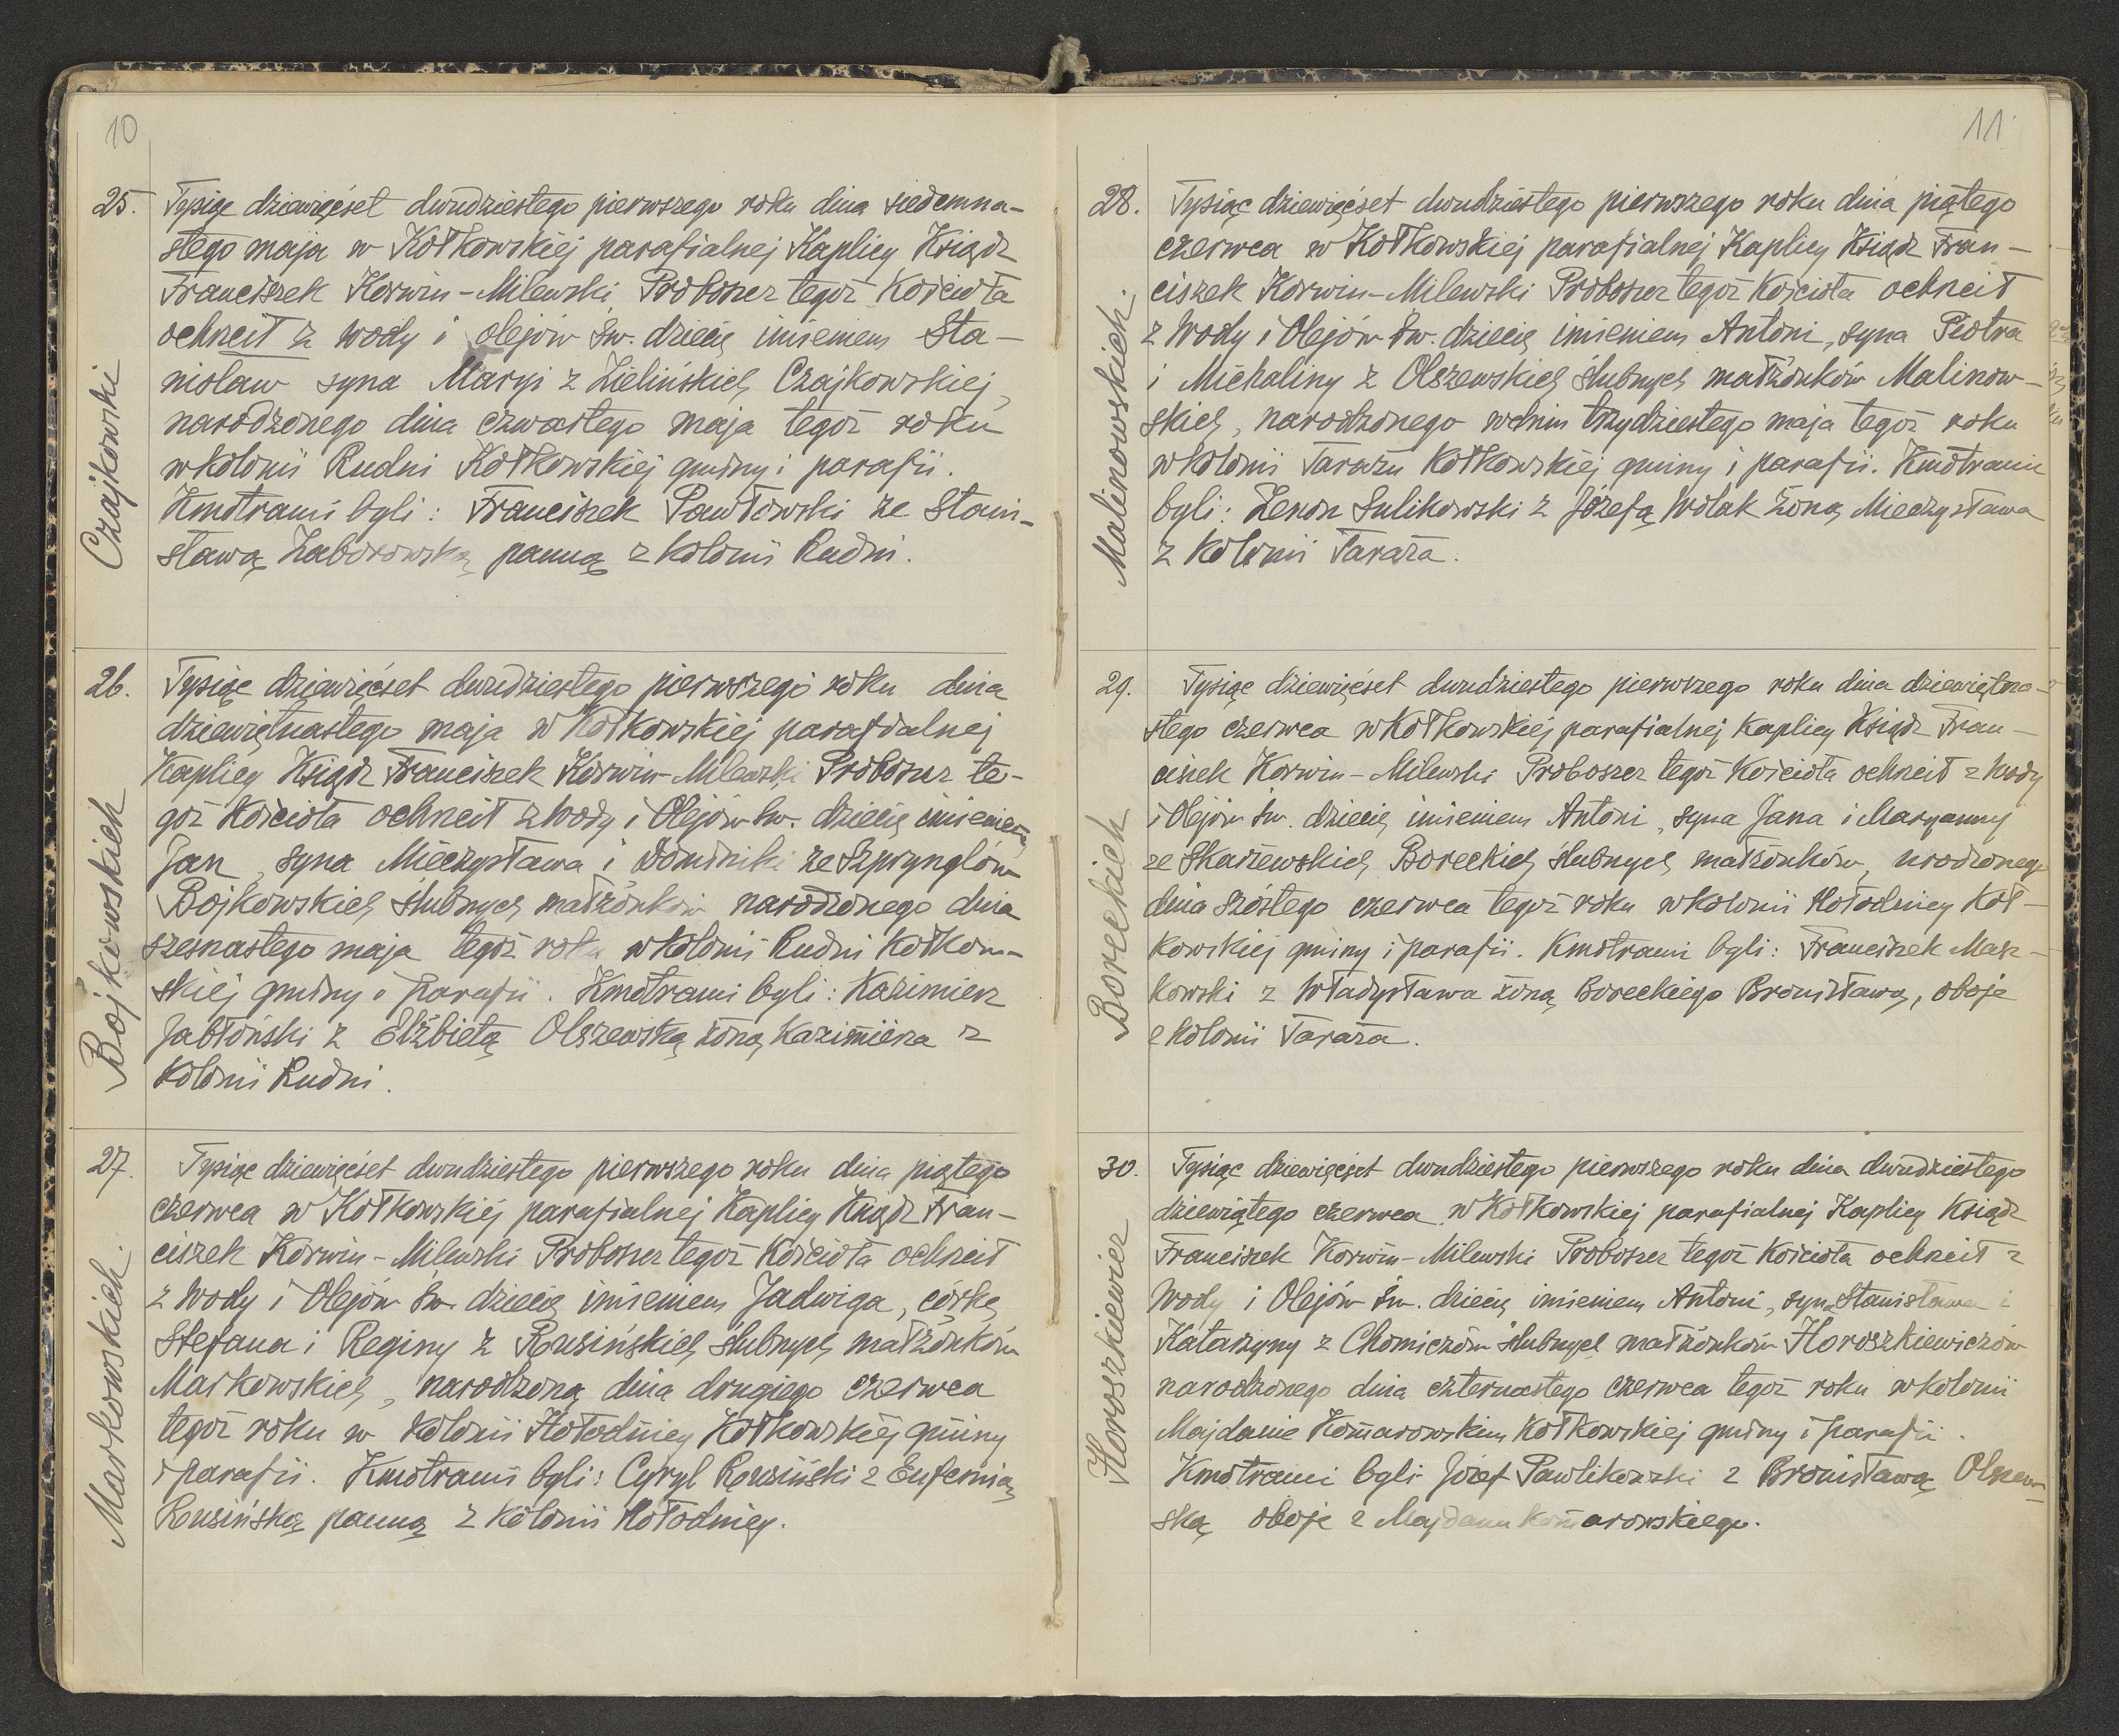 10
25.
Czajkowski
Tysiąc dziewięćset dwudziestego pierwszego roku dnia siedemna-
stego maja w Kołkowskiej parafialnej Kaplicy Ksiądz
Franciszek Korwin-Milewski Proboszcz tegoż Kościoła
ochrcił z wody i olejów św. dziecię imieniem Sta-
nisław syna Maryi z Zielińskich Czajkowskiej,
narodzonego dnia czwartego maja tegoż roku
w kolonii Rudni Kołkowskiej gminy i parafii.
Kmotrami byli: Franciszek Pawłowski ze Stani-
sławą Zaborowską panną z kolonii Rudni.
26.
Bojkowskich
Tysiąc dziewięćset dwudziestego pierwszego roku dnia
dziewiętnastego maja w Kołkowskiej parafialnej
Kaplicy Ksiądz Franciszek Korwin-Milewski Proboszcz te-
goż Kościoła ochrcił z wody i Olejów św. dziecię imieniem
Jan, syna Mieczysława i Dominiki ze Szprynglów
Bojkowskich ślubnych małżonków narodzonego dnia
szesnastego maja tegoż roku w kolonii Rudni Kołkow-
skiej gminy i parafii. Kmotrami byli: Kazimierz
Jabłoński z Elżbietą Olszewską żoną Kazimierza z
Kolonii Rudni.
27.
Markowskich.
Tysiąc dziewięćset dwudziestego pierwszego roku dnia piątego
czerwca w Kołkowskiej parafialnej Kaplicy Ksiądz Fran-
ciszek Korwin-Milewski Proboszcz tegoż Kościoła ochrcił
z Wody i Olejów św. dziecię imieniem Jadwiga, córkę
Stefana i Reginy z Rusińskich ślubnych małżonków
Markowskich, narodzoną dnia drugiego czerwca
tegoż roku w Kolonii Hołodnicy Kołkowskiej gminy
i parafii. Kmotrami byli: Cyryl Rusiński z Eufemią
Rusińską panną z Kolonii Hołodnicy.
11
28.
Malinowskich.
Tysiąc dziewięćset dwudziestego pierwszego roku dnia piątego
czerwca w Kołkowskiej parafialnej Kaplicy Ksiądz Fran-
ciszek Korwin-Milewski Proboszcz tegoż Kościoła ochrcił
z Wody i Olejów św. dziecię imieniem Antoni, syna Piotra
i Michaliny z Olszewskich ślubnych małżonków Malinow-
skich, narodzonego w dniu trzydziestego maja tegoż roku
w kolonii Tarażu Kołkowskiej gminy i parafii. Kmotrami
byli: Zenon Sulikowski z Józefą Wolak żoną Mieczysława
z Kolonii Taraża.
29.
Boreckich
Tysiąc dziewięćset dwudziestego pierwszego roku dnia dziewiętna-
stego czerwca w Kołkowskiej parafialnej Kaplicy Ksiądz Fran-
ciszek Korwin-Milewski Proboszcz tegoż Kościoła ochrcił z Wody
i Olejów św. dziecię imieniem Antoni, syna Jana i Maryanny
ze Skarżewskich Boreckich ślubnych małżonków, urodzonego
dnia szóstego czerwca tegoż roku w kolonii Hołodnicy Koł-
kowskiej gminy i parafii. Kmotrami byli: Franciszek Mar-
kowski z Władysława żoną Boreckiego Bronisławą, oboje
z kolonii Taraża.
30.
Horoszkiewicz
Tysiąc dziewięćset dwudziestego pierwszego roku dnia dwudziestego
dziewiątego czerwca w Kołkowskiej parafialnej Kaplicy Ksiądz
Franciszek Korwin-Milewski Proboszcz tegoż Kościoła ochrcił z
Wody i Olejów św. dziecię imieniem Antoni, syna Stanisława i
Katarzyny z Chomiczów ślubnych małżonków Horoszkiewiczów
narodzonego dnia czternastego czerwca tegoż roku w kolonii
Majdanie Komarowskim Kołkowskiej gminy i parafii.
Kmotrami byli Józef Pawlikowski z Bronisławą Olszew-
ską oboje z Majdanu Komarowskiego.